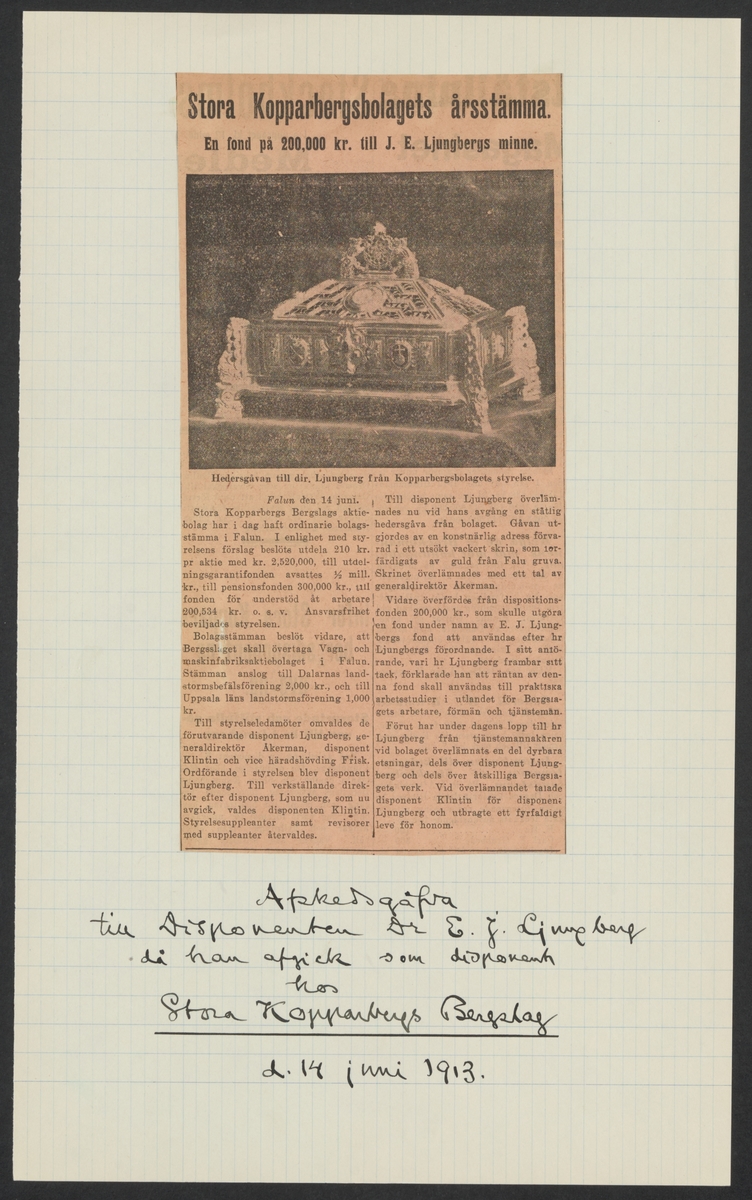 Stora Kopparbergsbolagets årsstämma.
En fond på 200,000 kr. till J. E. Ljungbergs minne.
Hedersgåvan till dir. Ljungberg från Kopparbergsbolagets styrelse.
Falun den 14 juni.
Stora Kopparbergs Bergslags aktie-
bolag har i dag haft ordinarie bolags-
stämma i Falun. I enlighet med sty-
relsens förslag beslöts utdela 210 kr.
pr aktie med kr. 2,520,000, till utdel-
ningsgarantifonden avsattes ½ mill.
kr., till pensionsfonden 300,000 kr., till
fonden för understöd åt arbetare
200,534 kr. o. s. v. Ansvarsfrihet
beviljades styrelsen.
Bolagsstämman beslöt vidare, att
Bergsslaget skall övertaga Vagn- och
maskinfabriksaktiebolaget i Falun.
Stämman anslog till Dalarnas land-
stormsbefälsförening 2,000 kr., och till
Uppsala läns landstormsförening 1,000
kr.
Till styrelseledamöter omvaldes de
förutvarande disponent Ljungberg, ge-
neraldirektör Åkerman, disponent
Klintin och vice häradshövding Frisk.
Ordförande i styrelsen blev disponent
Ljungberg. Till verkställande direk-
tör efter disponent Ljungberg, som nu
avgick, valdes disponenten Klintin.
Styrelsesuppleanter samt revisorer
med suppleanter återvaldes.
Till disponent Ljungberg överläm-
nades nu vid hans avgång en ståttig
hedersgåva från bolaget. Gåvan ut-
gjordes av en konstnärlig adress förva-
rad i ett utsökt vackert skrin, som för-
färdigats av guld från Falu gruva.
Skrinet överlämnades med ett tal av
generaldirektör Åkerman.
Vidare överfördes från dispositions-
fonden 200,000 kr., som skulle utgöra
en fond under namn av E. J. Ljung-
bergs fond att användas efter hr
Ljungbergs förordnande. I sitt anfö-
rande, vari hr Ljungberg frambar sitt
tack, förklarade han att räntan av den-
na fond skall användas till praktiska
arbetsstudier i utlandet för Bergsla-
gets arbetare, förmän och tjänstemän.
Förut har under dagens lopp till hr
Ljungberg från tjänstemannakåren
vid bolaget överlämnats en del dyrbara
etsningar, dels över disponent Ljung-
berg och dels över åtskilliga Bergsla-
gets verk. Vid överlämnandet talade
disponent Klintin för disponent
Ljungberg och utbragte ett fyrfaldigt
leve för honom.
Afskedsgåfva
till Disponenten Dr E. J. Ljungberg
då han afgick som disponent
hos
Stora Kopparbergs Bergslag
d. 14 juni 1913.